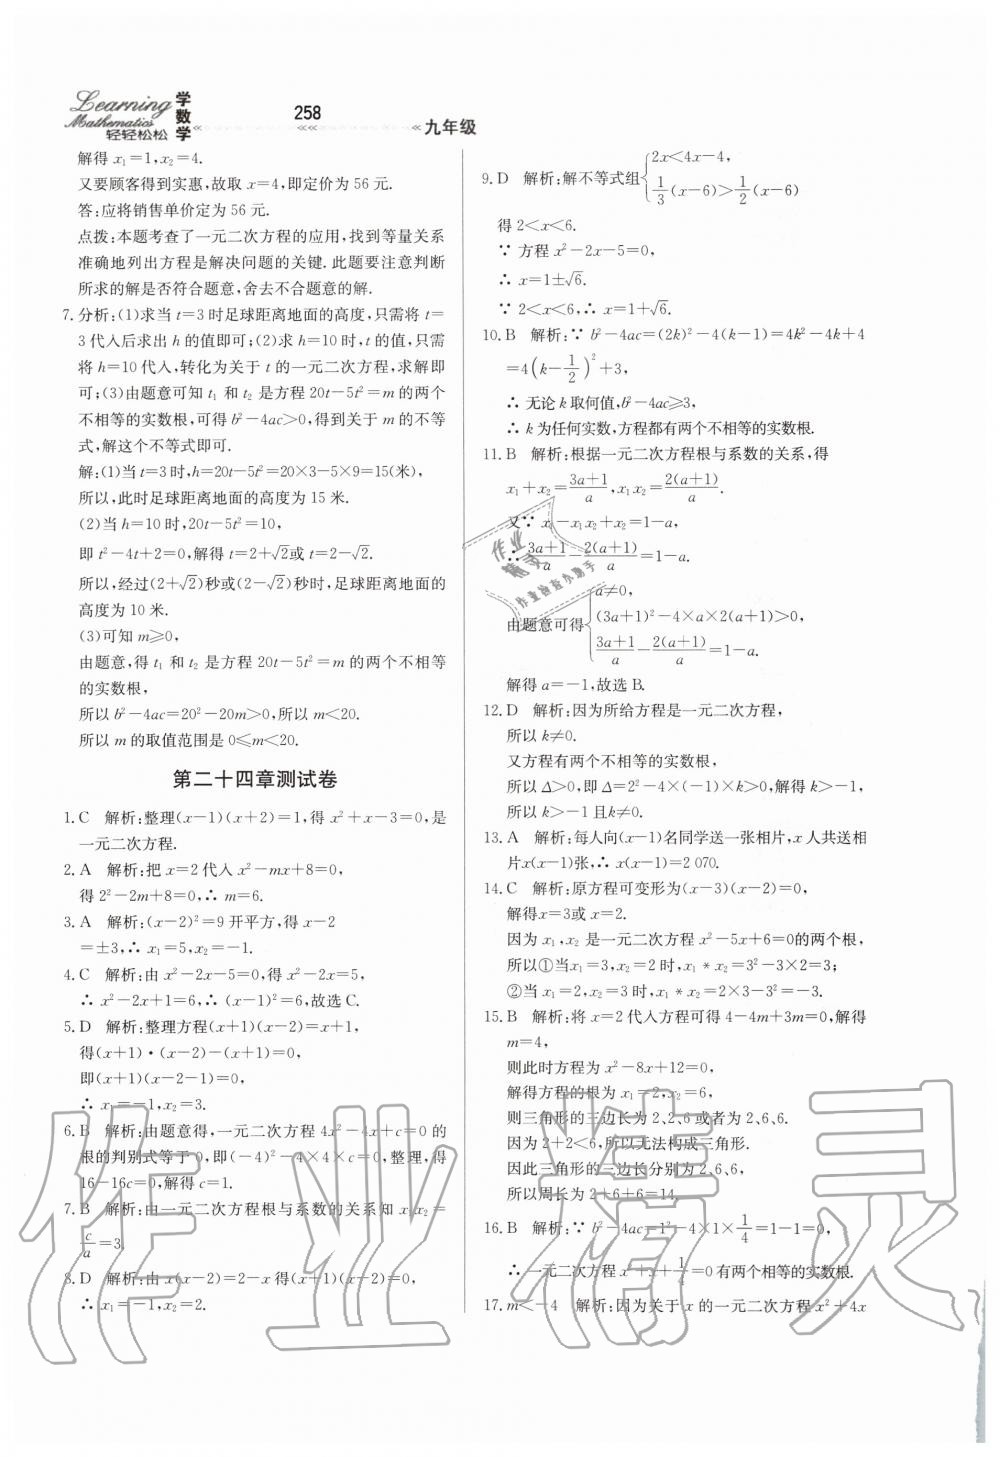 Learning
Mathematics
轻轻松松
学数学
258
九年级
解得 x₁=1,x₂=4.
又要顾客得到实惠,故取 x=4,即定价为 56 元.
答:应将销售单价定为 56 元.
点拨:本题考查了一元二次方程的应用,找到等量关系
准确地列出方程是解决问题的关键. 此题要注意判断
所求的解是否符合题意,舍去不合题意的解.
7. 分析:(1)求当 t=3 时足球距离地面的高度,只需将 t=
3 代入后求出 h 的值即可;(2)求 h=10 时,t 的值,只需
将 h=10 代入,转化为关于 t 的一元二次方程,求解即
可;(3)由题意可知 t₁ 和 t₂ 是方程 20t-5t²=m 的两个
不相等的实数根,可得 b²-4ac>0,得到关于 m 的不等
式,解这个不等式即可.
解:(1)当 t=3 时,h=20t-5t²=20×3-5×9=15(米),
所以,此时足球距离地面的高度为 15 米.
(2)当 h=10 时,20t-5t²=10,
即 t²-4t+2=0,解得 t=2+√2或 t=2-√2.
所以,经过(2+√2)秒或(2-√2)秒时,足球距离地面的
高度为 10 米.
(3)可知 m≥0,
由题意,得 t₁ 和 t₂ 是方程 20t-5t²=m 的两个不相等
的实数根,
所以 b²-4ac=20²-20m>0,所以 m<20.
所以 m 的取值范围是 0≤m<20.
第二十四章测试卷
1. C 解析:整理(x-1)(x+2)=1,得 x²+x-3=0,是
一元二次方程.
2. A 解析:把 x=2 代入 x²-mx+8=0,
得 2²-2m+8=0,∴ m=6.
3. A 解析:(x-2)²=9 开平方,得 x-2
=±3,∴ x₁=5,x₂=-1.
4. C 解析:由 x²-2x-5=0,得 x²-2x=5,
∴ x²-2x+1=6,∴ (x-1)²=6,故选 C.
5. D 解析:整理方程(x+1)(x-2)=x+1,
得(x+1)·(x-2)-(x+1)=0,
即(x+1)(x-2-1)=0,
∴ x₁=-1,x₂=3.
6. B 解析:由题意得,一元二次方程 4x²-4x+c=0 的
根的判别式等于 0,即(-4)²-4×4×c=0,整理,得
16-16c=0,解得 c=1.
7. B 解析:由一元二次方程根与系数的关系知 x₁x₂=
c/a=3.
8. D 解析:由 x(x-2)=2-x 得(x+1)(x-2)=0,
∴ x₁=-1,x₂=2.
9. D 解析:解不等式组{2x<4x-4,
1/3(x-6)>1/2(x-6)
得 2<x<6.
∵ 方程 x²-2x-5=0,
∴ x=1±√6.
∵ 2<x<6,∴ x=1+√6.
10. B 解析:∵ b²-4ac=(2k)²-4(k-1)=4k²-4k+4
=4(k-1/2)²+3,
∴ 无论 k 取何值,b²-4ac≥3,
∴ k 为任何实数,方程都有两个不相等的实数根.
11. B 解析:根据一元二次方程根与系数的关系,得
x₁+x₂=(3a+1)/a,x₁x₂=2(a+1)/a.
又∵ x₁-x₁x₂+x₂=1-a,
∴ (3a+1)/a-2(a+1)/a=1-a.
由题意可得{a≠0,
(3a+1)²-4×a×2(a+1)>0,
(3a+1)/a-2(a+1)/a=1-a.
解得 a=-1,故选 B.
12. D 解析:因为所给方程是一元二次方程,
所以 k≠0.
又方程有两个不相等的实数根,
所以 Δ>0,即 Δ=2²-4×(-1)×k>0,解得 k>-1,
所以 k>-1 且k≠0.
13. A 解析:每人向(x-1)名同学送一张相片,x 人共送相
片x(x-1)张,∴ x(x-1)=2 070.
14. C 解析:原方程可变形为(x-3)(x-2)=0,
解得x=3或 x=2.
因为 x₁,x₂ 是一元二次方程 x²-5x+6=0的两个根,
所以①当x₁=3,x₂=2 时,x₁*x₂=3²-3×2=3;
②当 x₁=2,x₂=3 时,x₁*x₂=2×3-3²=-3.
15. B 解析:将 x=2 代入方程可得 4-4m+3m=0,解得
m=4,
则此时方程为 x²-8x+12=0,
解得方程的根为 x₁=2,x₂=6,
则三角形的三边长为 2、2、6 或者为 2、6、6.
因为 2+2<6,所以无法构成三角形.
因此三角形的三边长分别为 2、6、6,
所以周长为 2+6+6=14.
16. B 解析:∵ b²-4ac=1²-4×1×1/4=1-1=0,
∴ 一元二次方程 x²+x+1/4=0有两个相等的实数根.
17. m<-4 解析:因为关于 x 的一元二次方程 x²+4x
作业精灵
作业检查小助手
作业精灵